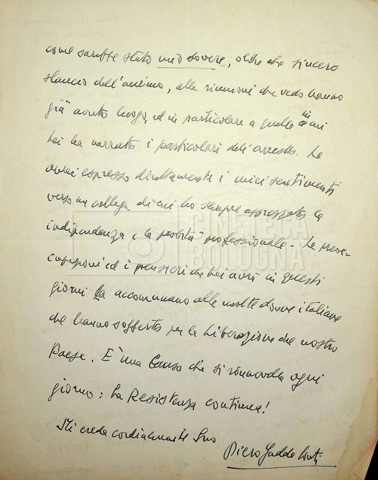 come sarebbe stato mio dovere, oltre che sincero
slancio dell'animo, alle riunioni che vedo hanno
già avuto luogo, ed in particolare a quella in cui
Lei ha narrato i particolari dell'arresto. Le
avrei espresso direttamente i miei sentimenti
verso un collega di cui ho sempre apprezzato la
indipendenza e la probità professionale. Le preoc-
cupazioni ed i pensieri che Lei avrà in questi
giorni La accomunano alle nostre donne italiane
che hanno sofferto per la Liberazione del nostro
Paese. È una Causa che si rinnovella ogni
giorno: La Resistenza continua!
Mi creda cordialmente Suo
Piero Gadda Conti
CINETECA
BOLOGNA